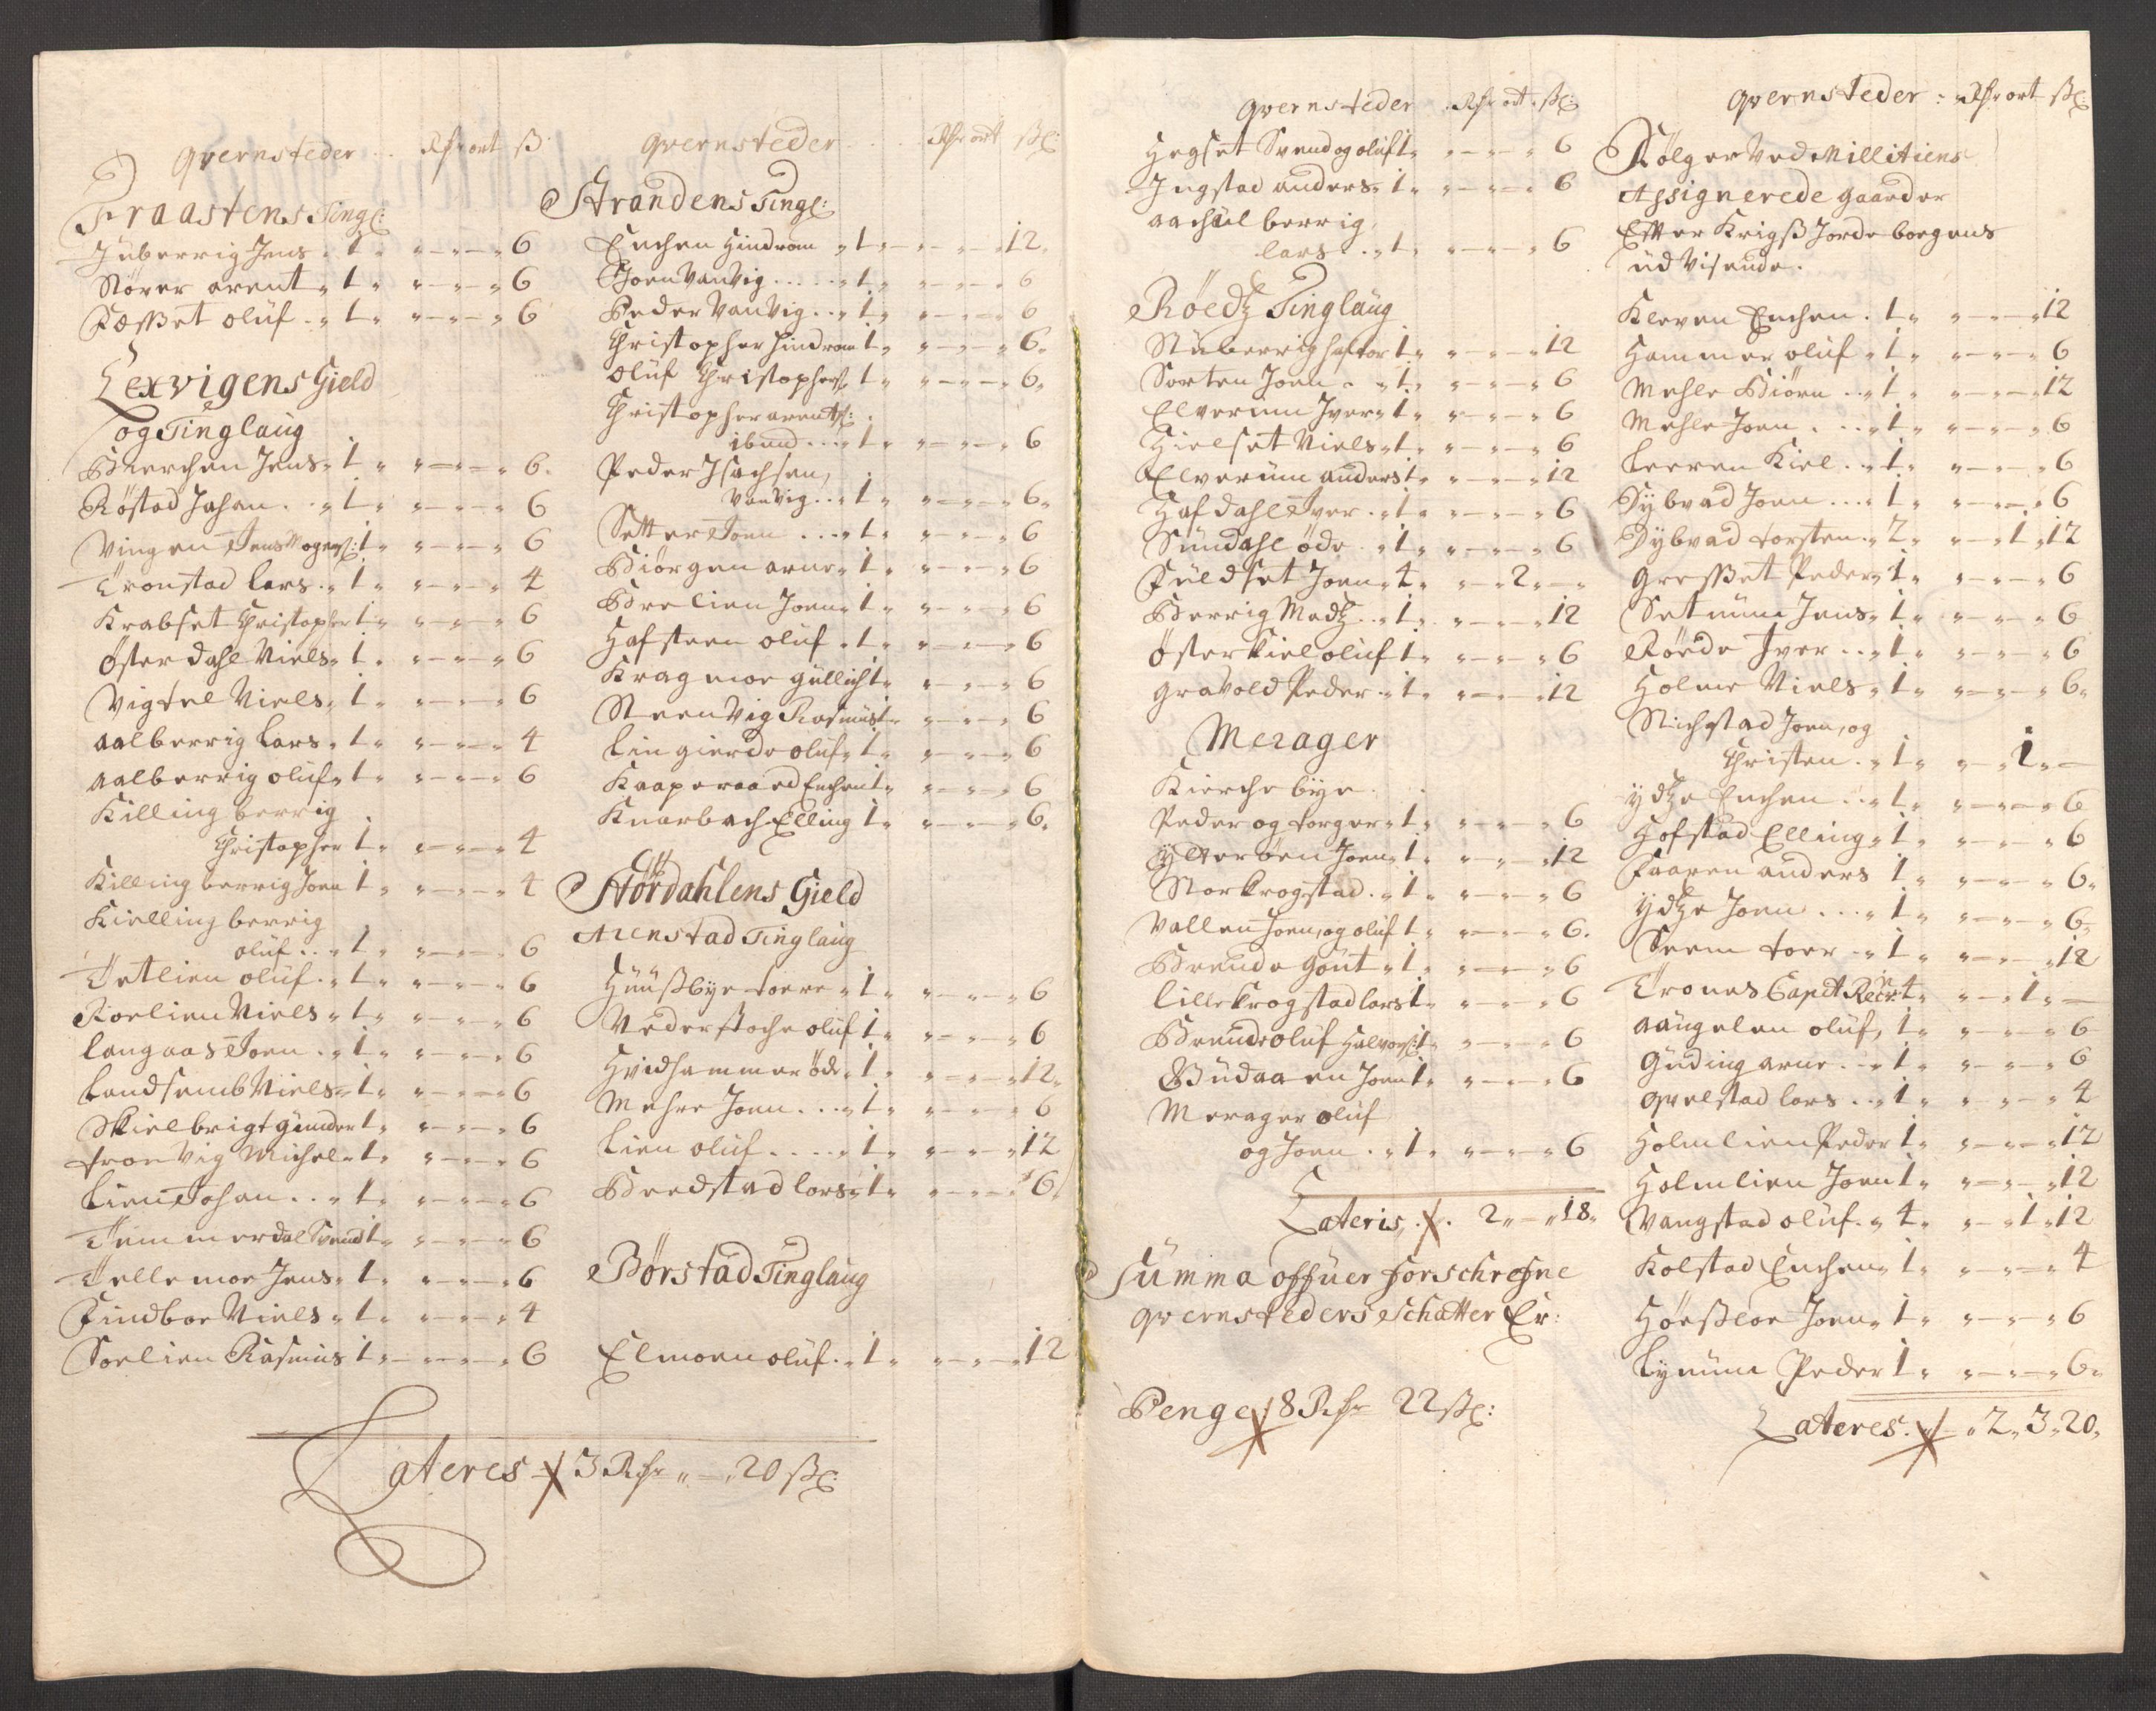 qvernsteder .. Rdr ort ß
Fraastens Tingl:
Juberrig Jens . 1 „ „ — „ — „ 6
Støren arent „ 1 „ „ — „ — „ 6
Fæsset oluf . „ 1 „ „ — „ — „ 6
Lexvigens Gield
og Tinglaug
Bierchen Jens „ 1 „ „ — „ — „ 6.
Røstad Johan . „ 1 „ „ — „ — „ 6
Vingen Jens Mogens: 1 „ „ — „ — „ 6
Tronstad Lars . „ 1 „ „ — „ — „ 4
Krabset Christopher 1 „ „ — „ — „ 6
Østerdahl Niels „ 1 . „ — „ — „ 6
Vigtel Niels „ 1 „ „ — „ — „ 6
aalberrig Lars „ 1 „ „ — „ — „ 4
aalberrig oluf „ 1 „ „ — „ — „ 6
Killing berrig
Christopher 1 „ „ — „ — „ 4
Killing berrig Joen 1 „ „ — „ — „ 4
Kielling berrig
oluf .. „ 1 „ „ — „ — „ 6
Tetlien oluf . „ 1 „ „ — „ — „ 6
Roelien Niels „ 1 „ „ — „ — „ 6
langaas Joen . „ 1 „ „ — „ — „ 6
Landsemb Niels „ 1 „ „ — „ — „ 6
Skielbrigt gunder 1 „ „ — „ — „ 6
tronvig Michel „ 1 „ „ — „ — „ 6
Lien Johan .. „ 1 „ „ — „ — „ 6
Temmerdal Svend 1 „ „ — „ — „ 6
Tellemoe Jens „ 1 „ „ — „ — „ 6
Findboe Niels „ 1 „ „ — „ — „ 4
Soelien Rasmus 1 „ — „ — „ — „ 6
qvernsteder .... Rdr ort ß:
Strandens Tingl:
Enchen Hindrem „ 1 „ — „ — „ 12 „
Joen VanVig ..... „ 1 „ „ — „ — „ 6
Peder VanVig .. „ 1 „ „ — „ — „ 6
Christopher Hindrem 1 „ „ — „ — „ 6 „
Oluf Christophers: 1 „ „ — „ — „ 6 „
Christopher arents: .
ibend ... „ 1 „ „ — „ — „ 6
Peder Isachsen,
VanVig .. „ 1 „ „ — „ — „ 6 „
Setter Joen ... „ 1 „ „ — „ — „ 6
Biørgen arne „ 1 „ „ — „ — „ 6
Brelien Joen „ 1 „ „ — „ — „ 6
Hafsteen oluf . „ 1 „ „ — „ — „ 6
Kragmoe gullich 1 „ „ — „ — „ 6
SteenVig Rasmus 1 „ „ — „ — „ 6
Lingierde oluf „ 1 „ „ — „ — „ 6
Kaaperaaed Enchen 1 „ „ — „ — „ 6
Knarbach Elling 1 „ „ — „ — „ 6 „
Størdahlens Gield
Arenstad Tinglaug
Huußbye toere „ 1 „ „ — „ — „ 6
Vederstoche oluf 1 „ „ — „ — „ 6
Hvidhammer øde „ 1 „ „ — „ — „ 12 „
Mehre Joen ... „ 1 „ „ — „ — „ 6
Lien oluf .... „ 1 „ „ — „ — „ 12
Bredstad lars „ 1 „ „ — „ — „ 6
Børstad Tinglaug
Elmoen oluf . „ 1 „ „ — „ — „ 12
Lateres 3 Rdr „ — „ 20 ß:
qvernsteder Rdr ort . ß:
Hegset Svend og oluf 1 „ „ — „ — „ 6
Ingstad anders „ 1 „ „ — „ — „ 6
aachselberrig
lars .. „ 1 „ „ — „ — „ 6
Røedtz Tinglaug
Stuberrig haftor 1 „ „ — „ — „ 12
Sorten Joen . „ 1 „ „ — „ — „ 6
Elverum Iver „ 1 „ „ — „ — „ 6
Hielset Niels „ 1 „ „ — „ — „ 6
Elverum anders 1 „ „ — „ — „ 12
Hafdahl Iver . „ 1 „ „ — „ — „ 6
Sundahl øde . „ 1 „ „ — „ — „ 6
Fuldset Joen „ 4 „ „ — „ 2 „ — „
Berrig Madtz .. „ 1 „ „ — „ — „ 12
Østerkiel oluf 1 „ „ — „ — „ 6
gravold Peder „ 1 „ „ — „ — „ 12
Merager
Kierchebye .
Peder og torger „ 1 „ „ — „ — „ 6
Ytterøen Joen „ 1 „ „ — „ — „ 12
Storkrogstad . „ 1 „ „ — „ — „ 6
Vallen Joen, og oluf 1 „ „ — „ — „ 6.
Brende gout „ 1 „ „ — „ — „ 6
lille krogstad lars 1 „ „ — „ — „ 6
Brende oluf Halvors: 1 „ „ — „ — „ 6
Budaaen Joen 1 „ „ — „ — „ 6
Merager oluf
og Joen . „ 1 „ „ — „ — „ 6
Lateris . 2 „ — „ 18 „
Summa offuer forschrefne
qvernsteders Schatter Er:
Penge 8 Rdr 22 ß:
qvernsteder : Rdr ort ß:
Følger Ved Millitiens
Assignerede gaarder
Efter Krigß Jordebogens
udVisende.
Kleven Enchen . 1 „ „ — „ — „ 12
Hammer oluf „ 1 „ „ — „ — „ 6
Mehle Biørn .. „ 1 „ „ — „ — „ 12
Mehle Joen ... „ 1 „ „ — „ — „ 6
Leeren Kiel .. „ 1 „ „ — „ — „ 6
Dybvad Joen ... „ 1 „ „ — „ — „ 6
Dybvad torsten „ 2 „ „ — „ 1 „ 12
gresset Peder „ 1 „ „ — „ — „ 6
Setnum Jens „ 1 „ „ — „ — „ 6
Røede Iver .. „ 1 „ „ — „ — „ 6
Holme Niels „ 1 „ „ — „ — „ 6 „
Stichstad Joen, og
Christen . „ 1 „ „ — „ 1 „ —
ydtze Enchen .. „ 1 „ „ — „ — „ 6
Hofstad Elling „ 1 „ „ — „ — „ 6
Faaren anders 1 „ „ — „ — „ 6 „
ydtze Joen ... „ 1 „ „ — „ — „ 6 „
Seem toer „ 1 „ „ — „ — „ 12
Trones Capit 1 „ „ — „ 1 „ —
aangelen oluf, 1 „ „ — „ — „ 6
guding arne .. „ 1 „ „ — „ — „ 6
qvelstad lars .. „ 1 „ „ — „ — „ 4
Holmlien Peder 1 „ „ — „ — „ 12
Holmlien Joen 1 „ „ — „ — „ 12
Vangstad oluf „ 4 „ „ — „ 1 „ 12
Kolstad Enchen „ 1 „ „ — „ — „ 4
Høeßloe Joen „ 1 „ „ — „ — „ 6
Lynum Peder 1 „ „ — „ — „ 6 „
Lateres . „ 2 „ 3 „ 20 „